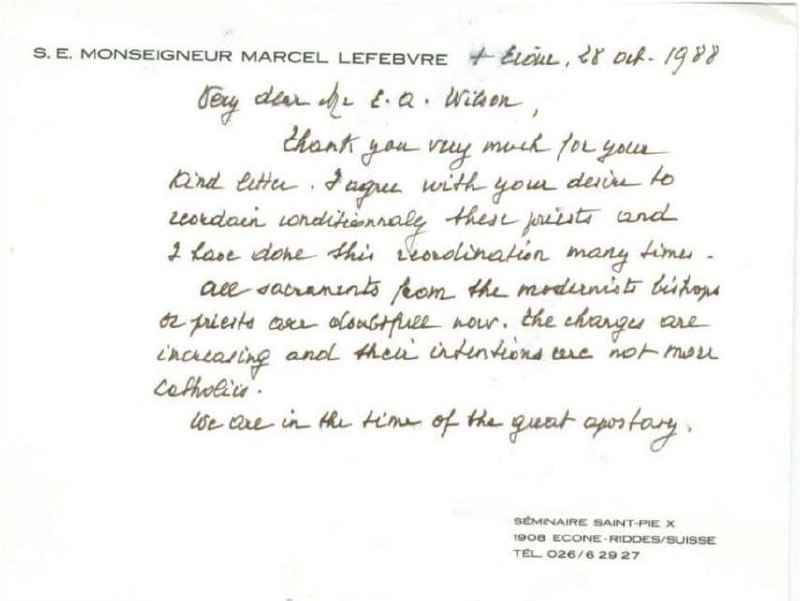 S. E. MONSEIGNEUR MARCEL LEFEBVRE + Ecône, 28 oct. 1988
Very dear Mr E. A. Wilson,
Thank you very much for your
kind letter. I agree with your desire to
reordain conditionnaly these priests and
I have done this reordination many times.
All sacraments from the modernists bishops
or priests are doubtfull now. The changes are
increasing and their intentions are not more
catholics.
We are in the time of the great apostasy.
SÉMINAIRE SAINT-PIE X
1908 ECONE-RIDDES/SUISSE
TÉL. 026/6 29 27